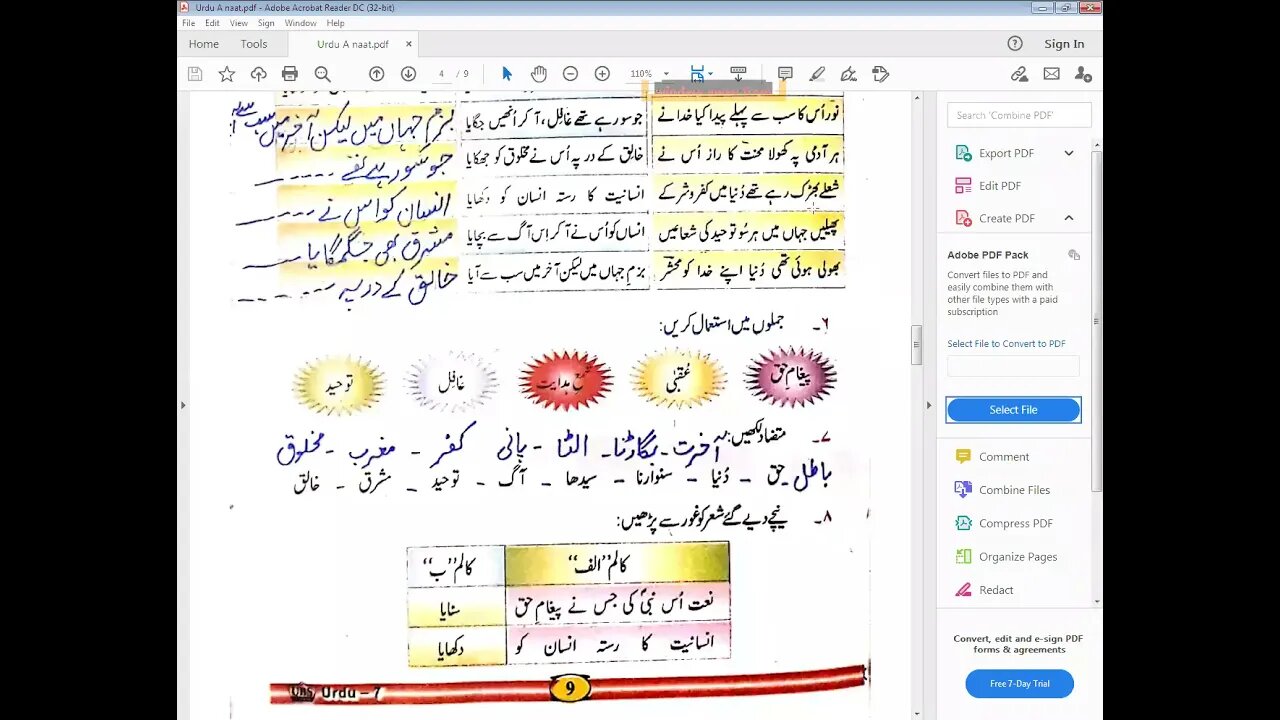 Urdu A naat.pdf - Adobe Acrobat Reader DC (32-bit)
File Edit View Sign Window Help
Home Tools Urdu A naat.pdf × Sign In
4 / 9 110%
نور اُس کا سب سے پہلے پیدا کیا خدا نے جو سو رہے تھے غافِل، آ کر اُنھیں جگایا بزم جہاں میں لیکن آخر میں سب سے آیا
ہر آدمی پہ کھولا محنت کا راز اُس نے خالِق کے در پہ اُس نے مخلوق کو جھکایا جو سو رہے تھے -----
شعلے بھڑک رہے تھے دُنیا میں کفر و شر کے انسانیت کا رستہ انسان کو دکھایا انسان کو اس نے ----
پھیلیں جہاں میں ہر سُو توحید کی شعاعیں انساں کو اُس نے آ کر اِس آگ سے بچایا مشرق بھی جگمگایا ——
بھولی ہوئی تھی دُنیا اپنے خدا کو محشر بزمِ جہاں میں لیکن آخر میں سب سے آیا خالق کے در پہ ------
۶۔ جملوں میں استعمال کریں:
پیغامِ حق عُقبٰی شمعِ ہدایت غافِل توحید
۷۔ متضاد لکھیں: آخرت - بگاڑنا - الٹا - پانی کفر - مغرب - مخلوق
باطل حق - دُنیا - سنوارنا - سیدھا - آگ - توحید - مشرق - خالق
۸۔ نیچے دیے گئے شعر کو غور سے پڑھیں:
کالم ’’الف‘‘ کالم ’’ب‘‘
نعت اُس نبیؐ کی جس نے پیغامِ حق سنایا
انسانیت کا رستہ انسان کو دکھایا
Urdu – 7 9
Search 'Combine PDF'
Export PDF
Edit PDF
Create PDF
Adobe PDF Pack
Convert files to PDF and
easily combine them with
other file types with a paid
subscription
Select File to Convert to PDF
Select File
Comment
Combine Files
Compress PDF
Organize Pages
Redact
Convert, edit and e-sign PDF
forms & agreements
Free 7-Day Trial